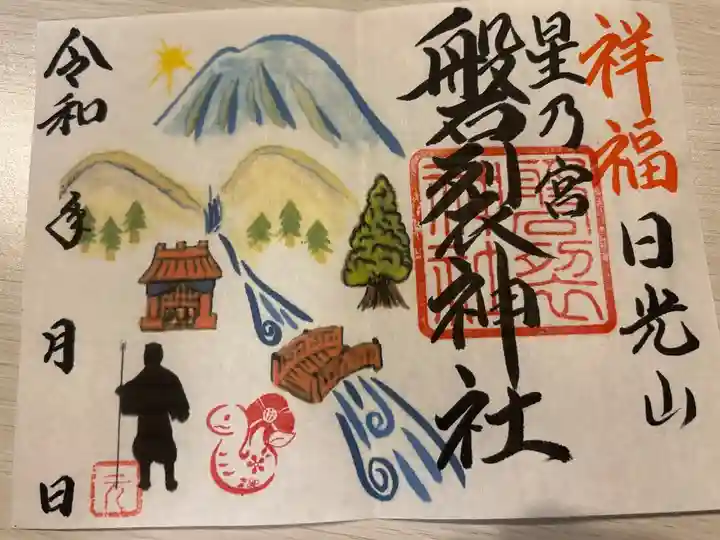 祥福
日光山
星乃宮
磐裂神社
令和 年 月 日